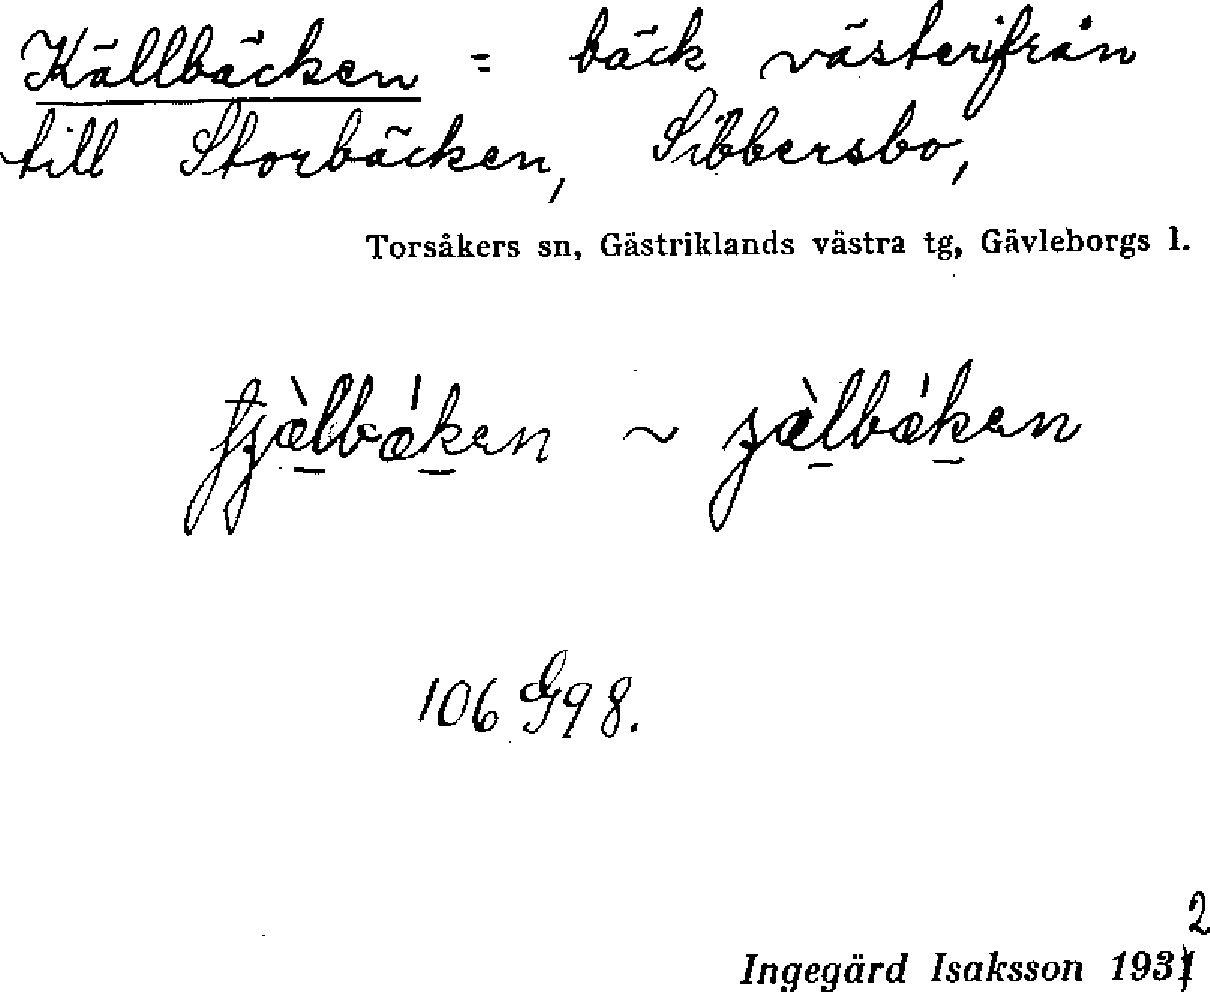 Källbäcken = bäck västerifrån
till Storbäcken, Sibbersbo,
Torsåkers sn, Gästriklands västra tg, Gävleborgs l.
~
106 G98.
2
Ingegärd Isaksson 1931